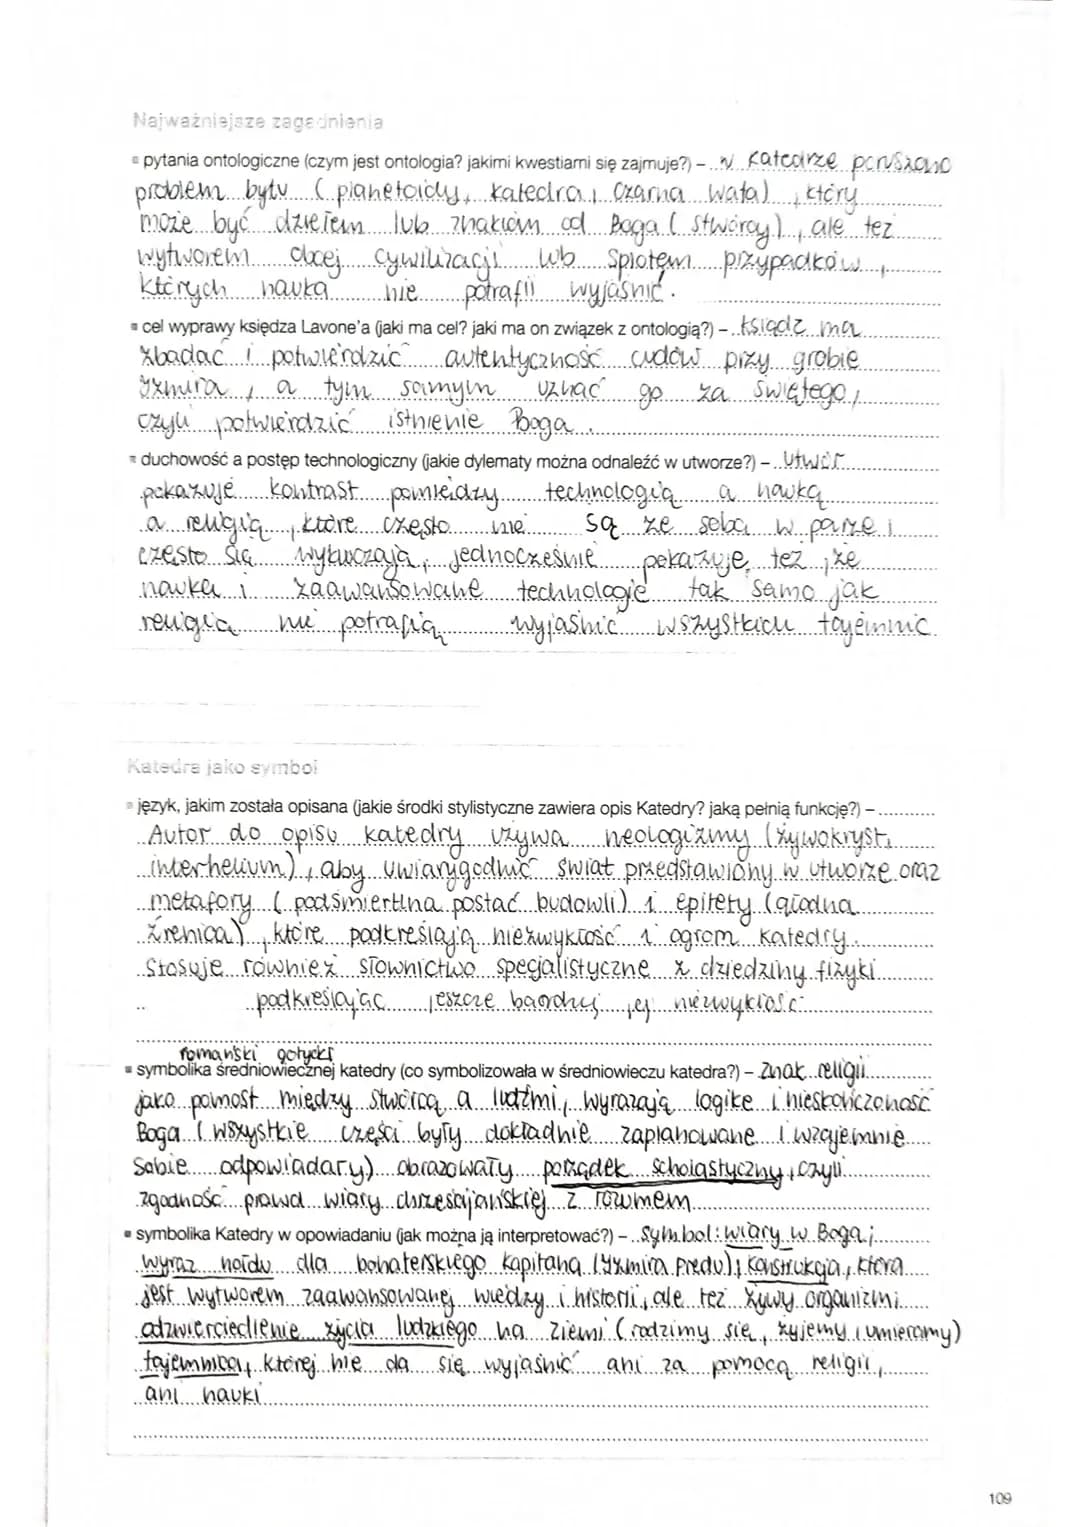 Najważniejsze zagadnienia
▪ pytania ontologiczne (czym jest ontologia? jakimi kwestiami się zajmuje?) – w Katedrze poruszono
problem bytu (planetoidy, katedra, czarna wata), który
może być dziełem lub znakiem od Boga (stwórcy), ale też
wytworem obcej cywilizacji lub splotem przypadków,
których nauka nie potrafi wyjaśnić.
▪ cel wyprawy księdza Lavone'a (jaki ma cel? jaki ma on związek z ontologią?) – ksiądz ma
zbadać i potwierdzić autentyczność cudów przy grobie
Izmira, a tym samym uznać go za świętego,
czyli potwierdzić istnienie Boga.
▪ duchowość a postęp technologiczny (jakie dylematy można odnaleźć w utworze?) – utwór
pokazuje kontrast pomiędzy technologią a nauką
a religią, które często nie są ze sobą w parze i
często się wykluczają, jednocześnie pokazuje też, że
nauka i zaawansowane technologie tak samo jak
religia nie potrafią wyjaśnić wszystkich tajemnic.
Katedra jako symbol
▪ język, jakim została opisana (jakie środki stylistyczne zawiera opis Katedry? jaką pełnią funkcję?) –
Autor do opisu katedry używa neologizmy (żywokryst,
interhelium), aby uwiarygodnić świat przedstawiony w utworze oraz
metafory (podśmiertlna postać budowli) i epitety (głodna
źrenica), które podkreślają niezwykłość i ogrom katedry.
Stosuje również słownictwo specjalistyczne z dziedziny fizyki
podkreślając jeszcze bardziej jej niezwykłość.
romański gotycki
▪ symbolika średniowiecznej katedry (co symbolizowała w średniowieczu katedra?) – znak religii
jako pomost między stwórcą a ludźmi, wyrażają logikę i nieskończoność
Boga (wszystkie części były dokładnie zaplanowane i wzajemnie
sobie odpowiadary) obrazowały porządek scholastyczny, czyli
zgodność prawd wiary chrześcijańskiej z rozumem
▪ symbolika Katedry w opowiadaniu (jak można ją interpretować?) – symbol: wiary w Boga;
wyraz hołdu dla bohaterskiego kapitana (Izmira Predu); konstrukcja, która
jest wytworem zaawansowanej wiedzy i historii, ale też żywy organizm;
odzwierciedlenie życia ludzkiego na Ziemi (rodzimy się, żyjemy i umieramy)
tajemnica, której nie da się wyjaśnić ani za pomocą religii,
ani nauki
109